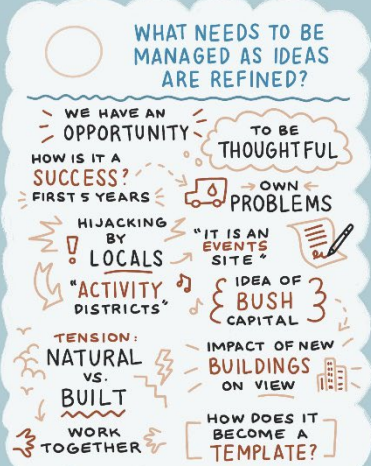 WHAT NEEDS TO BE
MANAGED AS IDEAS
ARE REFINED?
WE HAVE AN
OPPORTUNITY
TO BE
THOUGHTFUL
HOW IS IT A
SUCCESS?
FIRST 5 YEARS
OWN
PROBLEMS
HIJACKING
BY
LOCALS
"IT IS AN
EVENTS
SITE"
"ACTIVITY
DISTRICTS"
IDEA OF
BUSH
CAPITAL
TENSION:
NATURAL
VS.
BUILT
IMPACT OF NEW
BUILDINGS
ON VIEW
WORK
TOGETHER
HOW DOES IT
BECOME A
TEMPLATE?